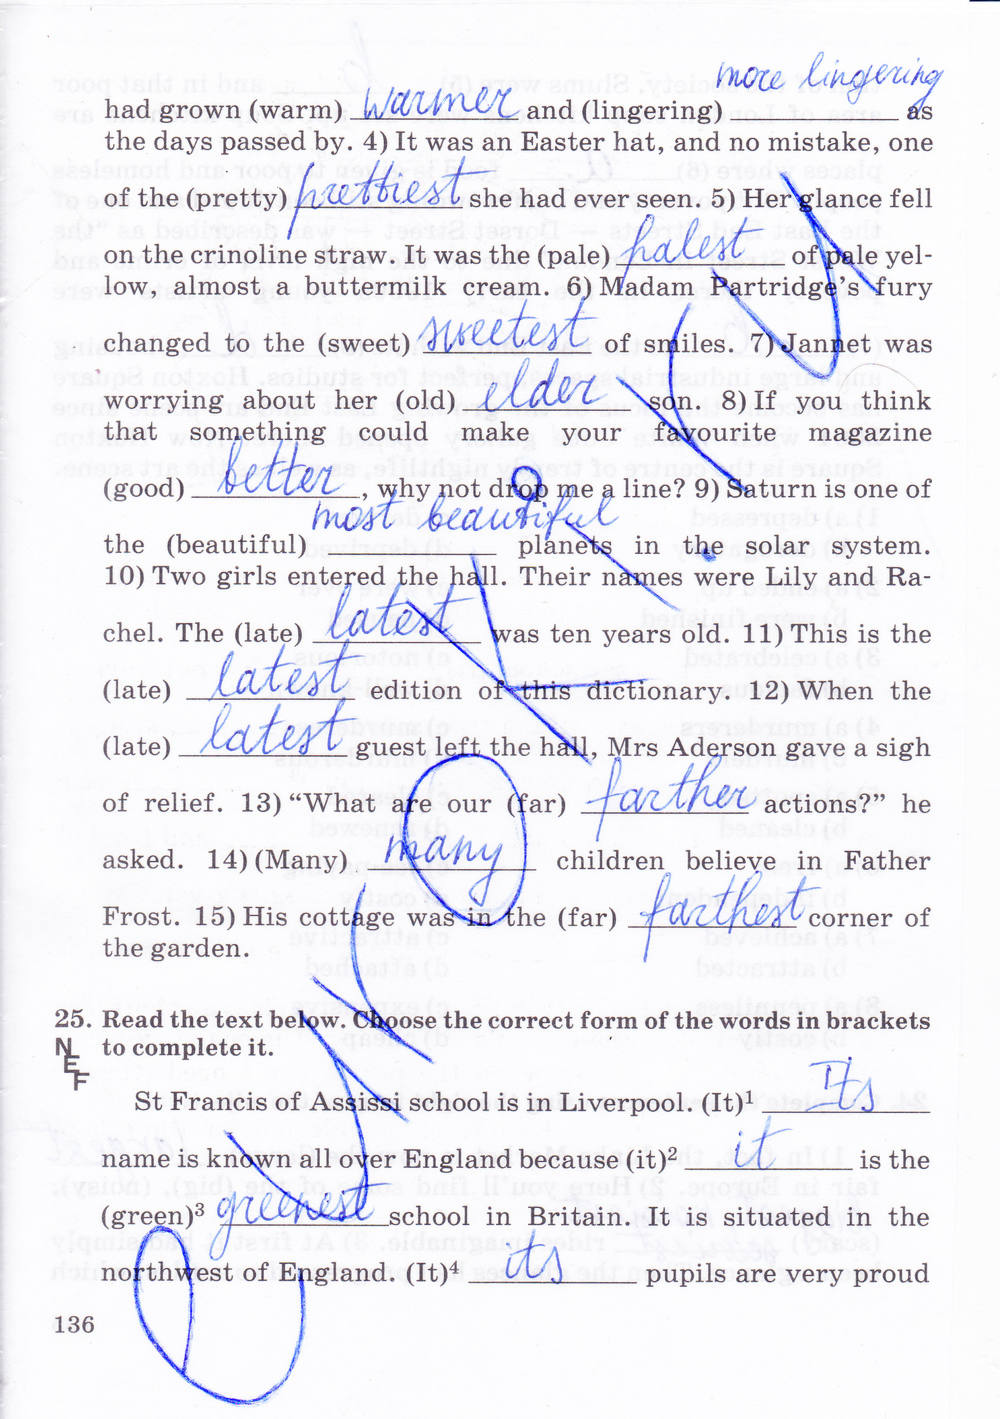 more lingering
had grown (warm) warmer and (lingering) as
the days passed by. 4) It was an Easter hat, and no mistake, one
of the (pretty) prettiest she had ever seen. 5) Her glance fell
on the crinoline straw. It was the (pale) palest of pale yel-
low, almost a buttermilk cream. 6) Madam Partridge's fury
changed to the (sweet) sweetest of smiles. 7) Jannet was
worrying about her (old) elder son. 8) If you think
that something could make your favourite magazine
(good) better, why not drop me a line? 9) Saturn is one of
most beautiful
the (beautiful) planets in the solar system.
10) Two girls entered the hall. Their names were Lily and Ra-
chel. The (late) latest was ten years old. 11) This is the
(late) latest edition of this dictionary. 12) When the
(late) latest guest left the hall, Mrs Aderson gave a sigh
of relief. 13) "What are our (far) farther actions?" he
asked. 14) (Many) many children believe in Father
Frost. 15) His cottage was in the (far) farthest corner of
the garden.
25. Read the text below. Choose the correct form of the words in brackets
NEF to complete it.
St Francis of Assissi school is in Liverpool. (It)1 Its
name is known all over England because (it)2 it is the
(green)3 greenest school in Britain. It is situated in the
northwest of England. (It)4 its pupils are very proud
136